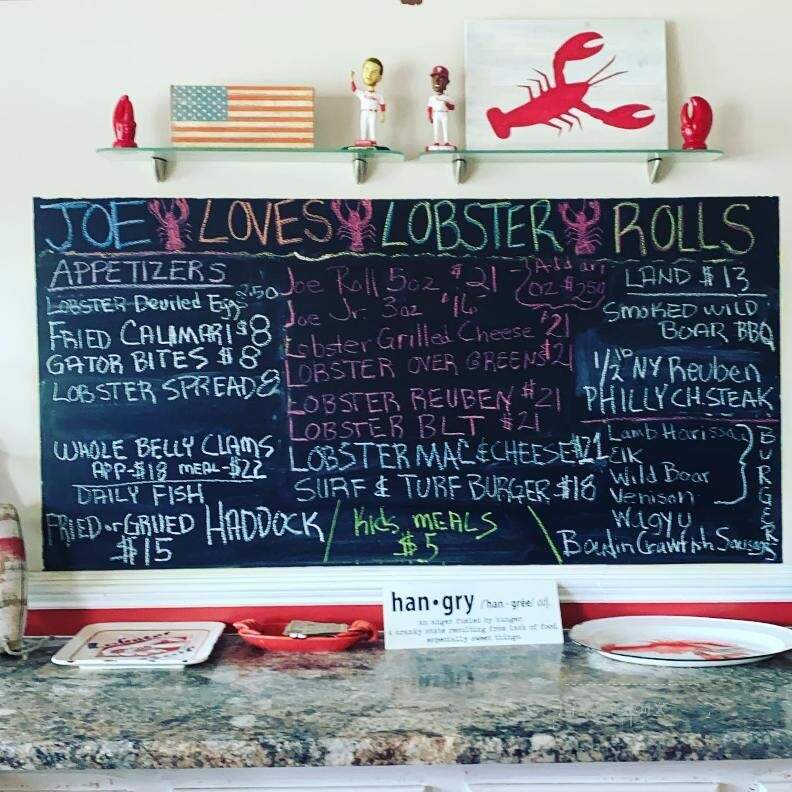 JOE LOVES LOBSTER ROLLS
APPETIZERS
LOBSTER Deviled Eggs 2.50
FRIED CALIMARI $8
GATOR BITES $8
LOBSTER SPREAD 8
WHOLE BELLY CLAMS
APP-$18 MEAL-$22
DAILY FISH
FRIED or GRILLED HADDOCK
$15
Joe Roll 5oz $21
Add an
OZ $2.50
Joe Jr. 3oz $16
Lobster Grilled Cheese $21
LOBSTER OVER GREENS $21
LOBSTER REUBEN $21
LOBSTER BLT $21
LOBSTER MAC & CHEESE $21
SURF & TURF BURGER $18
Kids MEALS
$5
LAND $13
SMOKED WILD
BOAR BBQ
1/2 lb NY Reuben
PHILLY CH STEAK
Lamb Harissa
Elk
Wild Boar
Venison
Wagyu
BURGERS
Boudin Crawfish Sausage
han•gry /han-gree/ adj.
an anger fueled by hunger
a cranky state resulting from lack of food
especially sweet things.